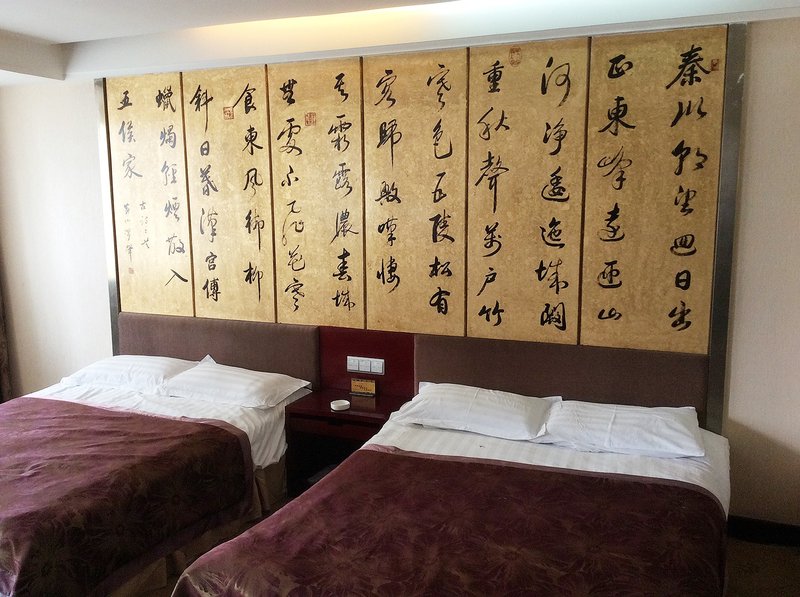 秦川朝望迥日出
正東峰遠近山
河淨逶迤城闕
重秋聲萬戶竹
寒色五陵松有
客歸歟嘆悽
其霜露濃春城
無處不飛花寒
食東風御柳
斜日暮漢宮傳
蠟燭輕煙散入
五侯家
古詩二首